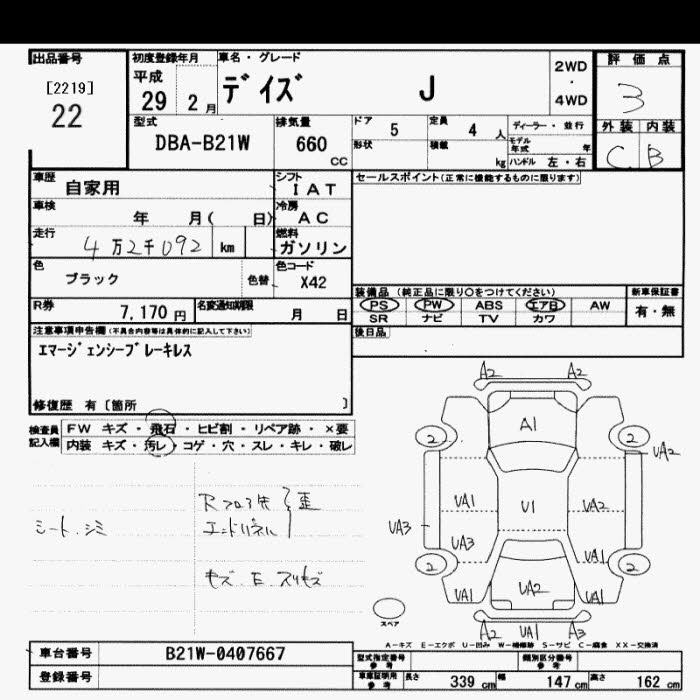 出品番号
[2219]
22
初度登録年月
平成
29 2月
車名・グレード
デイズ J
2WD
・
4WD
評価点
3
外装 内装
C B
型式
DBA-B21W
排気量
660
cc
ドア
5
定員
4 人
ディーラー・並行
モデル年式 年
形状
積載
kg
ハンドル 左・右
車歴
自家用
シフト
IAT
車検
年 月( 日)
冷房
AC
走行
4万2千092 km
燃料
ガソリン
色
ブラック
色替
色コード
X42
R券
7,170円
名変通知期限
月 日
セールスポイント(正常に機能するものに限ります)
装備品 (純正品に限り○をつけてください)
PS PW ABS エアB AW
SR ナビ TV カワ
新車保証書
有・無
後日品
注意事項申告欄(不具合内容等は具体的に記入して下さい)
エマージェンシーブレーキレス
修復歴 有〔箇所 〕
検査員
記入欄
FW キズ・飛石・ヒビ割・リペア跡・×要
内装 キズ・汚レ・コゲ・穴・スレ・キレ・破レ
シート.シミ
エンドパネル
歪
キズ.E.スリキズ
A2 A2
A1
2 2
UA2
UA1 U1 UA2
UA3
UA3
UA1
2 2
UA1 UA2 UA1
A2 UA1 A3
スペア
A-キズ E-エクボ U-凹み W-補修跡 S-サビ C-腐食 XX-交換済
車台番号
B21W-0407667
登録番号
型式指定番号
参考
類別区分番号
参考
車庫証明用
参考
長さ 339 cm
幅 147 cm
高さ 162 cm